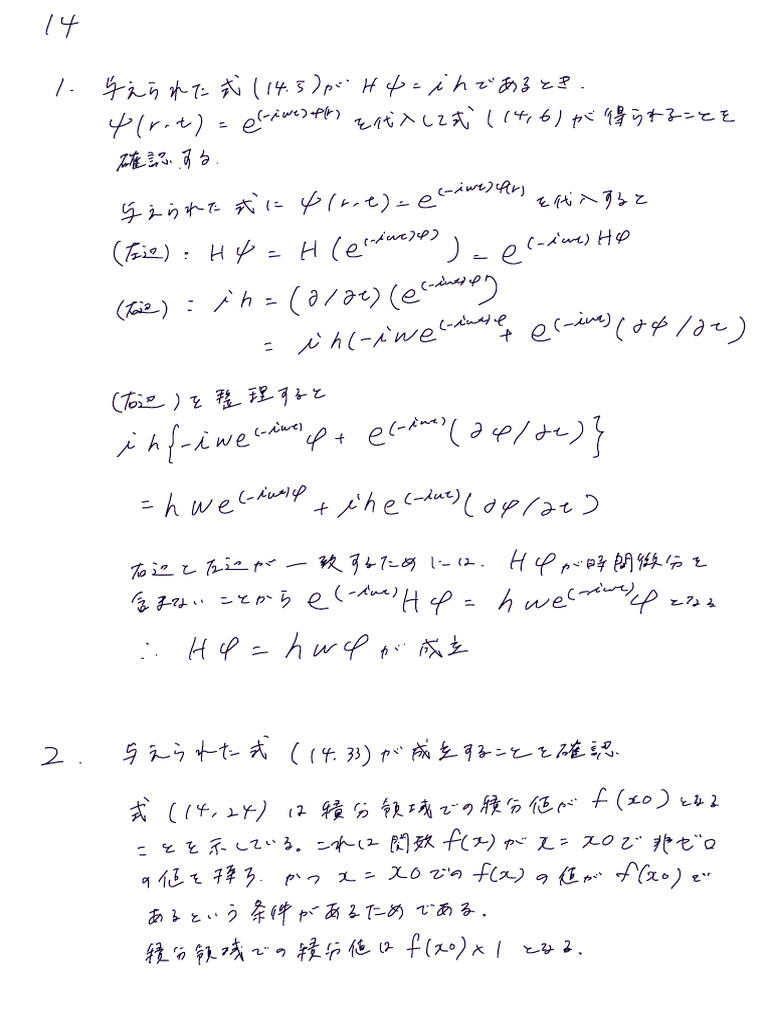 14
1. 与えられた式(14.5)が Hψ=ih であるとき.
ψ(r,t)=e^(-iwt)φ(r) を代入して式(14,6)が得られることを
確認する.
与えられた式に ψ(r,t)=e^(-iwt)φ(r) を代入すると
(左辺): Hψ = H(e^(-iwt)φ) = e^(-iwt)Hφ
(右辺): ih = (∂/∂t)(e^(-iwt)φ)
= ih(-iwe^(-iwt)φ + e^(-iwt)(∂φ/∂t)
(右辺)を整理すると
ih{-iwe^(-iwt)φ + e^(-iwt)(∂φ/∂t)}
= hwe^(-iwt)φ + ihe^(-iwt)(∂φ/∂t)
右辺と左辺が一致するためには. Hφが時間微分を
含まないことから e^(-iwt)Hφ = hwe^(-iwt)φ となる
∴ Hφ = hwφ が成立
2. 与えられた式(14.33)が成立することを確認.
式(14,24)は積分領域での積分値が f(x0) となる
ことを示している。これは関数f(x)が x=x0 で非ゼロ
の値を持ち. かつ x=x0 での f(x) の値が f(x0) で
あるという条件があるためである.
積分領域での積分値は f(x0)×1 となる.